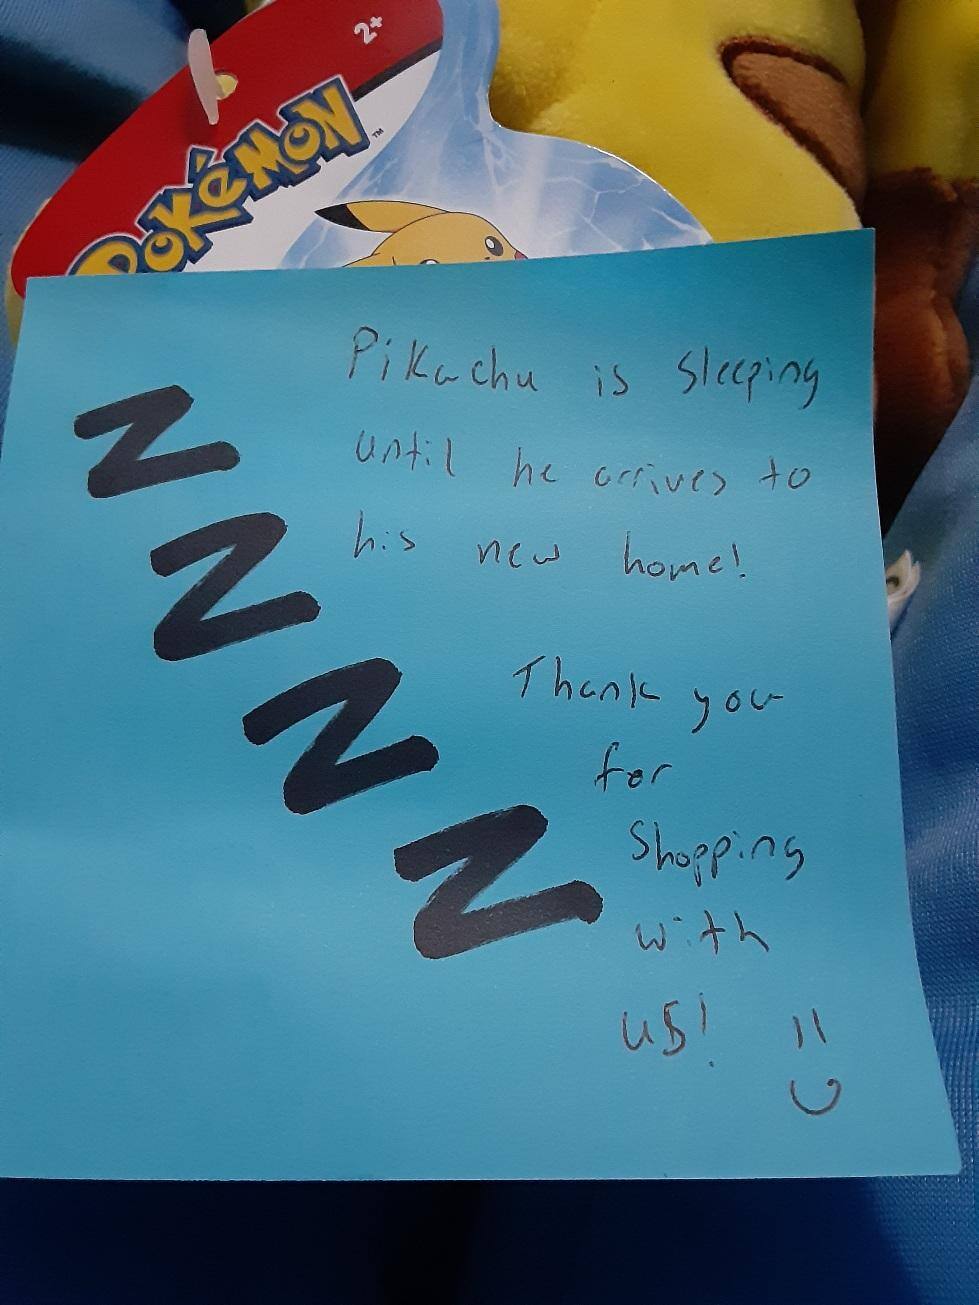 2+
POKéMON™
Pikachu is Sleeping
until he arrives to
his new home!
Z
Z
Z
Z
Thank you
for
Shopping
with
us!